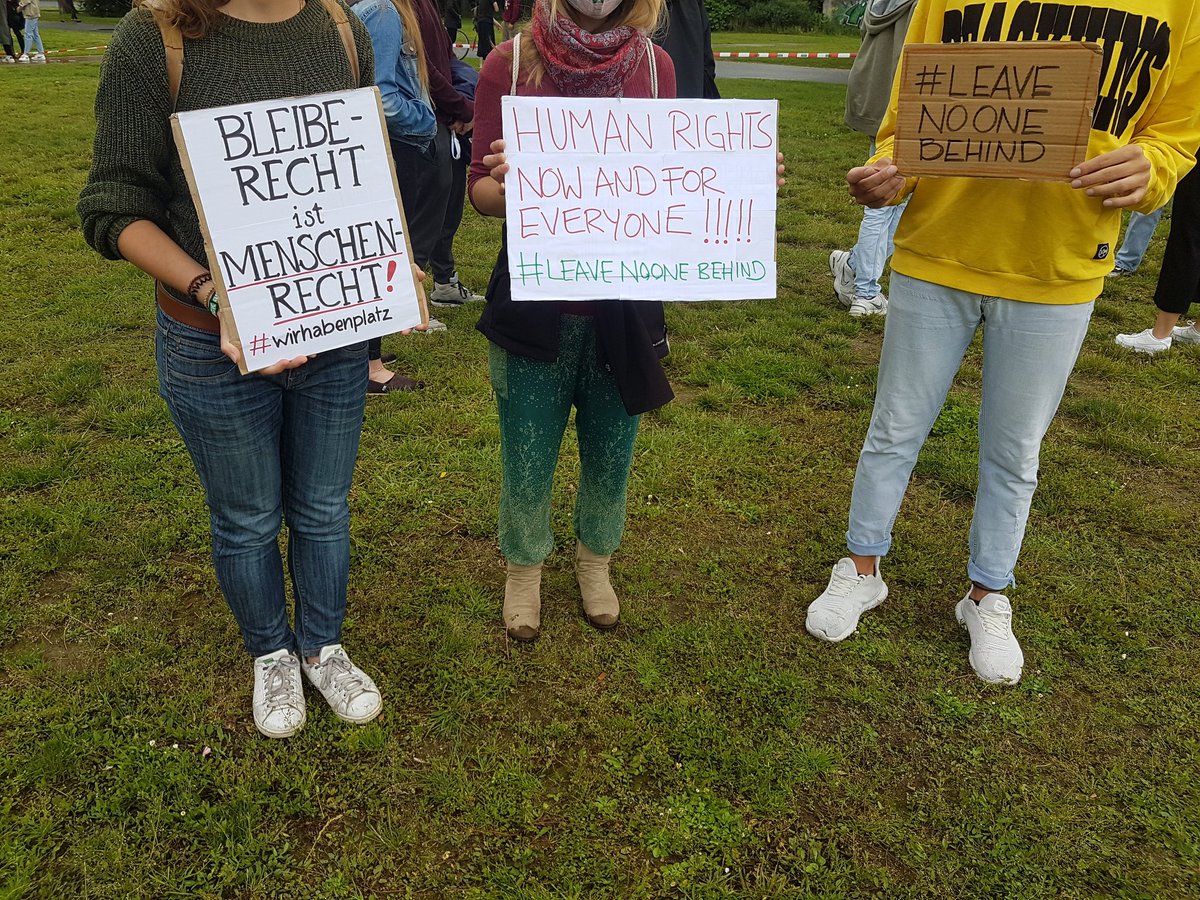 BLEIBE-
RECHT
ist
MENSCHEN-
RECHT!
#wirhabenplatz
HUMAN RIGHTS
NOW AND FOR
EVERYONE !!!!!
#LEAVE NO ONE BEHIND
#LEAVE
NO ONE
BEHIND